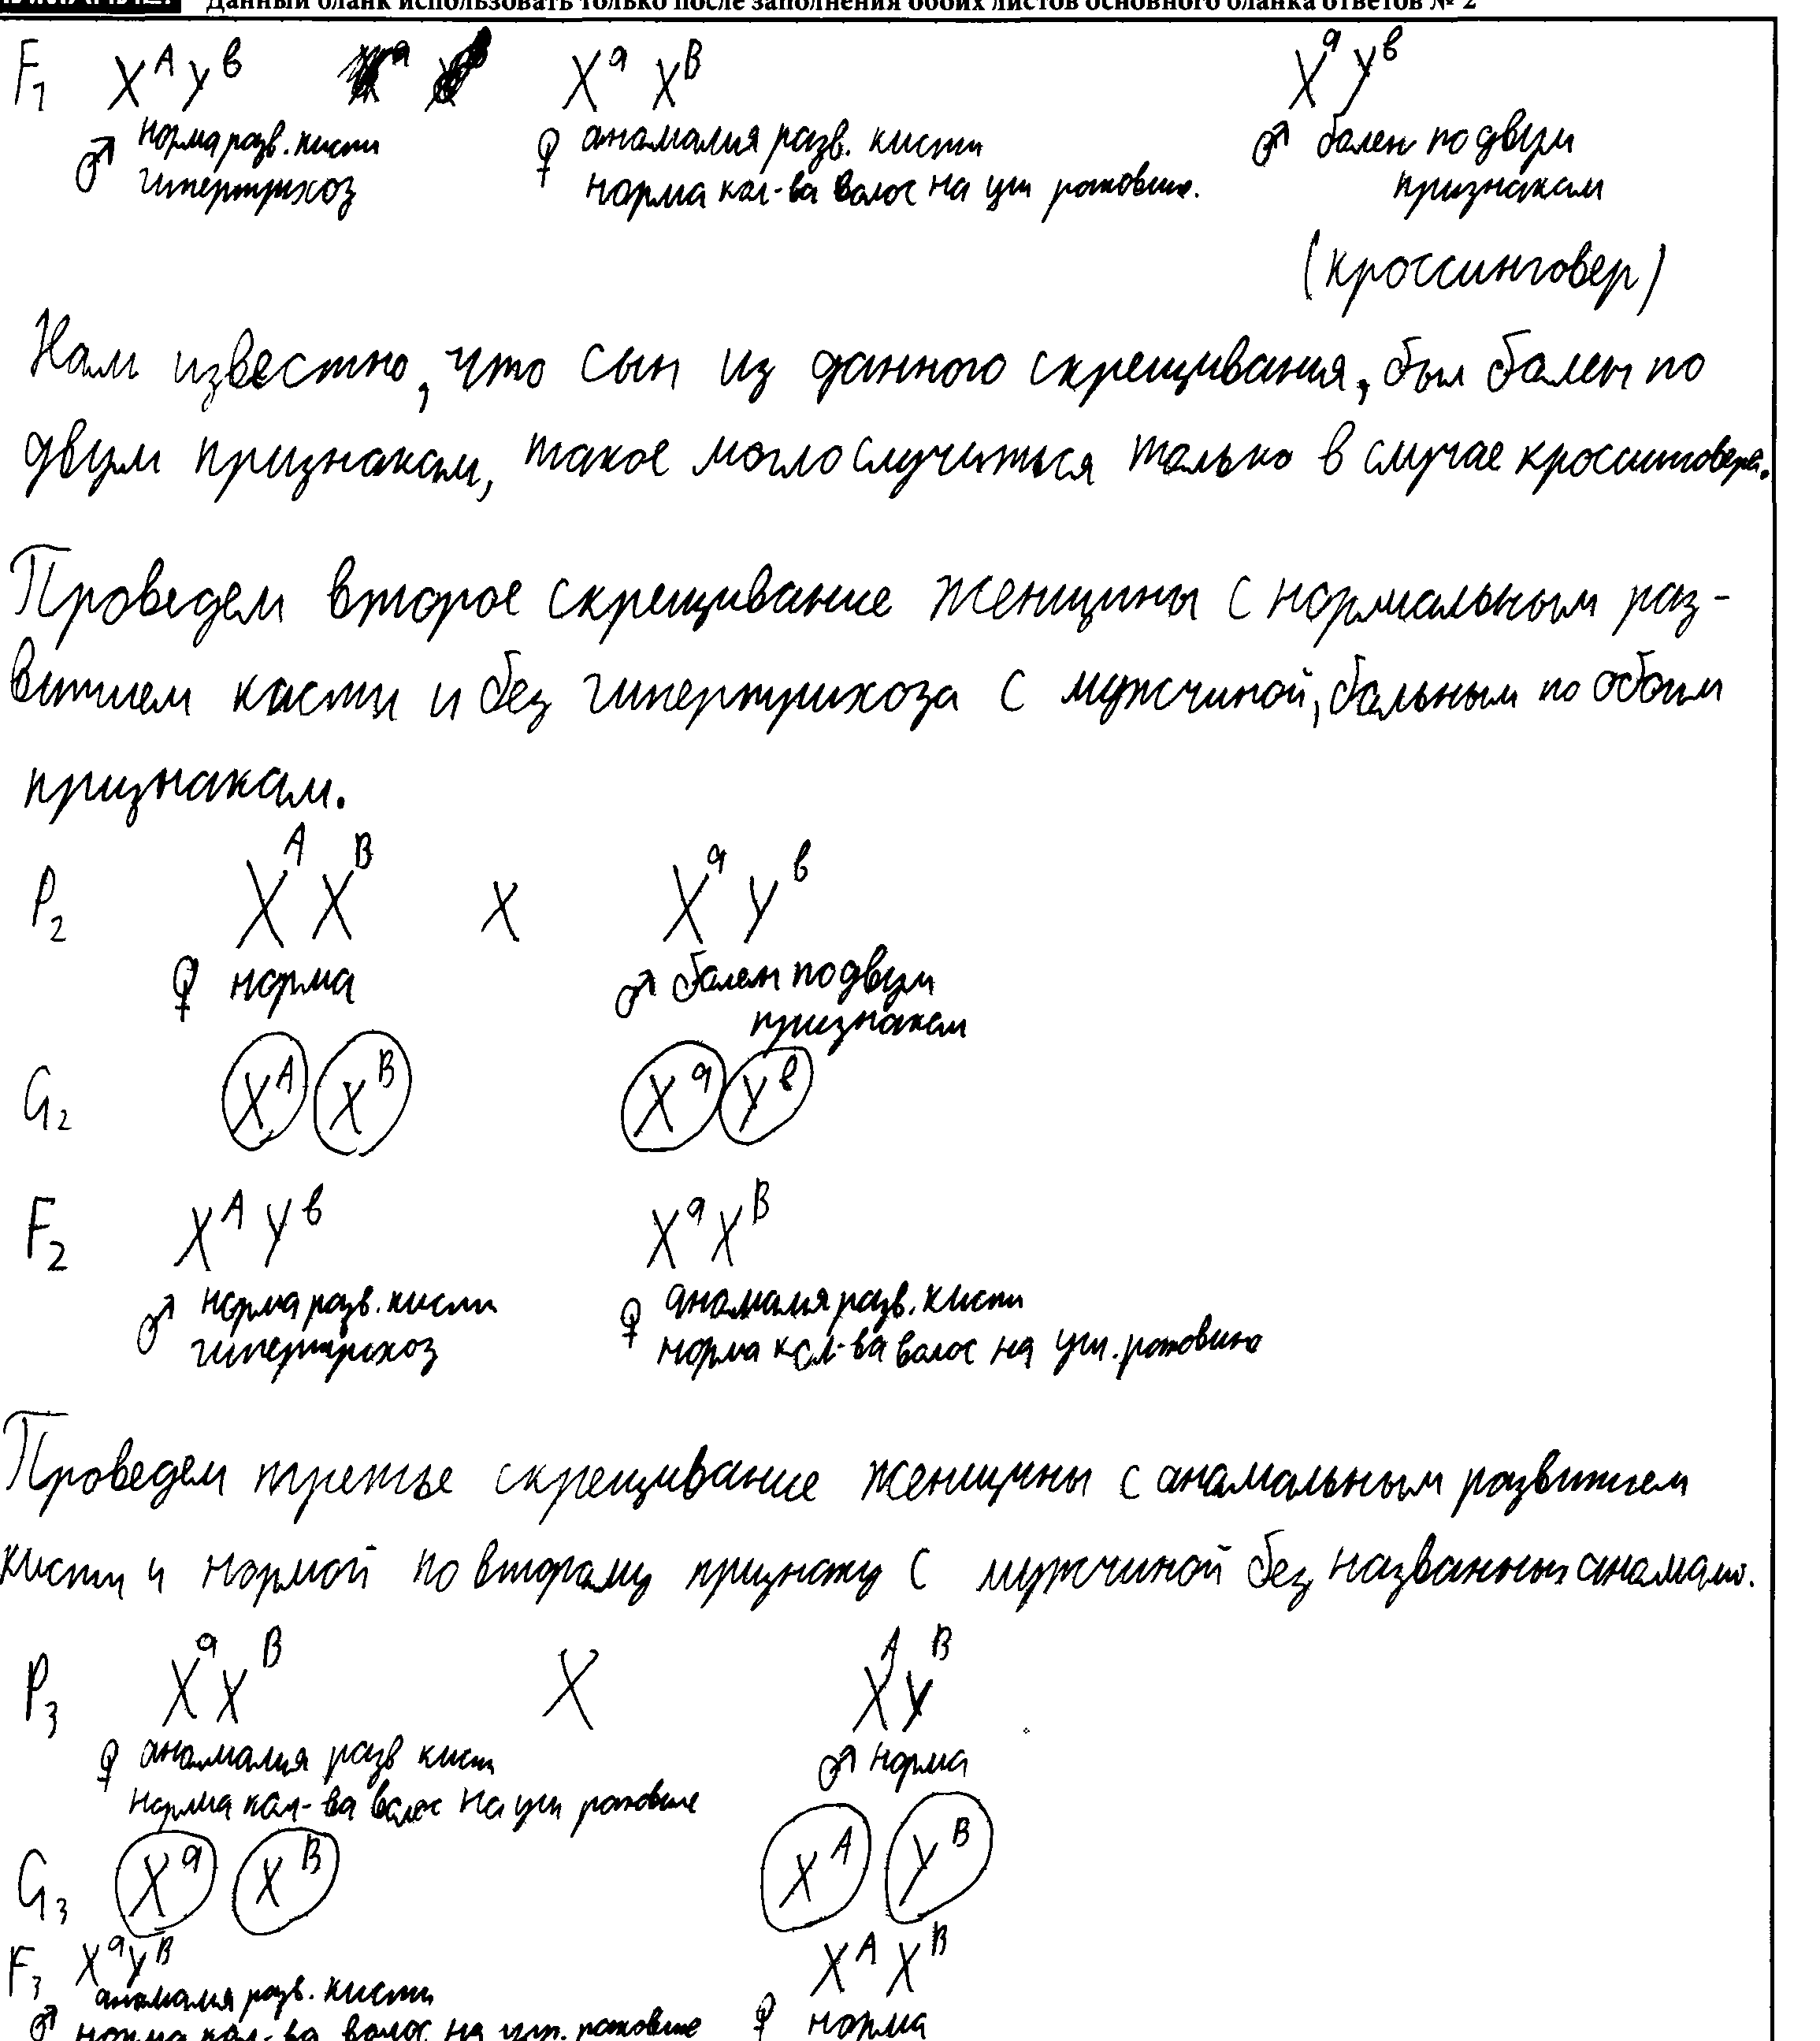 Данный бланк использовать только после заполнения обоих листов основного бланка ответов № 2
F₁ Xᴬ Yᵇ Xᵃ Xᴮ Xᵃ Yᵇ
♂ норма разв. кисти ♀ аномалия разв. кисти ♂ болен по двум
гипертрихоз норма кол-ва волос на уш раковине. признакам
(кроссинговер)
Нам известно, что сын из данного скрещивания, был болен по
двум признакам, такое могло случиться только в случае кроссинговера.
Проведем второе скрещивание женщины с нормальным раз-
витием кисти и без гипертрихоза с мужчиной, больным по обоим
признакам.
P₂ Xᴬ Xᴮ X Xᵃ Yᵇ
♀ норма ♂ болен по двум
признакам
G₂ Xᴬ Xᴮ Xᵃ Yᵇ
F₂ Xᴬ Yᵇ Xᵃ Xᴮ
♂ норма разв. кисти ♀ аномалия разв. кисти
гипертрихоз норма кол-ва волос на уш. раковине
Проведем третье скрещивание женщины с аномальным развитием
кисти и нормой по второму признаку с мужчиной без названных аномали.
P₃ Xᵃ Xᴮ X Xᴬ Yᴮ
♀ аномалия разв кисти ♂ норма
норма кол-ва волос на уш раковине
G₃ Xᵃ Xᴮ Xᴬ Yᴮ
F₃ Xᵃ Yᴮ Xᴬ Xᴮ
аномалия разв. кисти
♂ норма кол-ва волос на уш. раковине ♀ норма